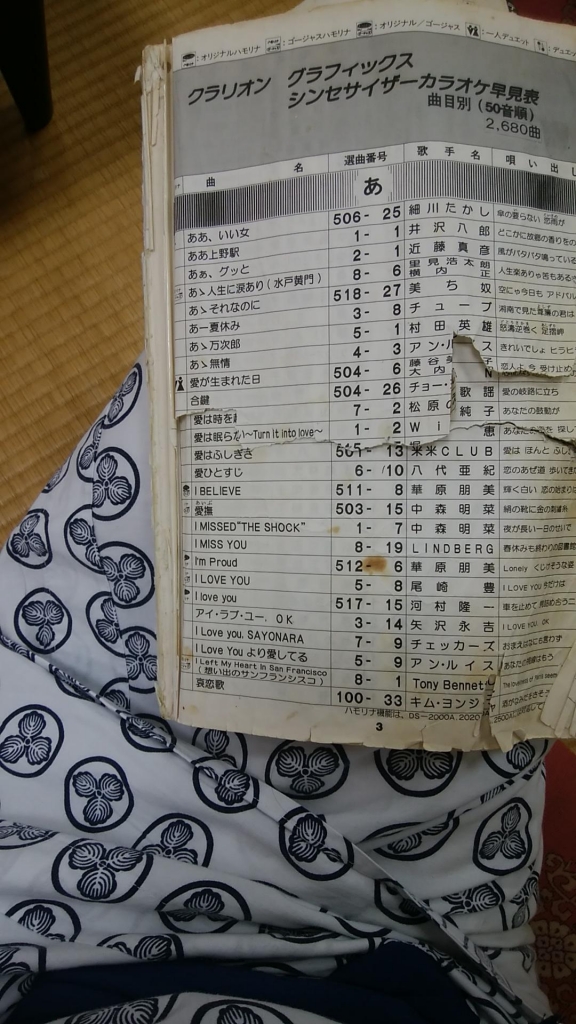 :オリジナルハモリナ :ゴージャスハモリナ :オリジナル／ゴージャス :一人デュエット :デュエ
クラリオン グラフィックス
シンセサイザーカラオケ早見表
曲目別（50音順）
2,680曲
曲 名 選曲番号 歌手名 唄い出し
あ
ああ、いい女 506- 25 細川たかし 傘の要らない 恋雨が
ああ上野駅 1- 1 井沢八郎 どこかに故郷の香りをの
あぁ、グッと 2- 1 近藤真彦 風がバタバタ鳴っている
あゝ人生に涙あり（水戸黄門） 8- 6 里見浩太朗 横内正 人生楽ありゃ苦もある
あゝそれなのに 518- 27 美ち奴 空にゃ今日も アドバル
あー夏休み 3- 8 チューブ 湘南で見た 葦簾の君は
あゝ万次郎 5- 1 村田英雄 怒濤逆巻く 足摺岬
あゝ無情 4- 3 アン・ル ス きれいでしょ ヒラヒ
愛が生まれた日 504- 6 藤谷美 大内 恋人よ 今 受け止め
合鍵 504- 26 チョー・ 歌謡 愛の岐路に立ち
愛は時を 7- 2 松原の 純子 あなたの鼓動が
愛は眠らない〜Turn it into love〜 1- 2 Wi 恵
愛はふしぎさ 13 米米CLUB 愛は ほんと ふし
愛ひとすじ 6- 10 八代亜紀 恋のあぜ道 歩いてき
I BELIEVE 511- 8 華原朋美 輝く白い 恋の始まり
愛撫 503- 15 中森明菜 絹の靴に金の
I MISSED "THE SHOCK" 1- 7 中森明菜 夜が長い一日のせいで
I MISS YOU 8- 19 LINDBERG 春休みも終わりの図書館
I'm Proud 512- 6 華原朋美 Lonely くじけそうな姿
I LOVE YOU 5- 8 尾崎豊 I LOVE YOU 今だけは
I love you 517- 15 河村隆一 車を止めて
アイ・ラブ・ユー、OK 3- 14 矢沢永吉 I LOVE YOU, OK
I Love you, SAYONARA 7- 9 チェッカーズ おまえはなにも言わず
I Love You より愛してる 5- 9 アン・ルイス あなたの
I Left My Heart In San Francisco（想い出のサンフランシスコ） 8- 1 Tony Bennett The loveliness of Paris seems
哀恋歌 100- 33 キム・ヨンジ
ハモリナ機能は、DS-2000A, 2020
3